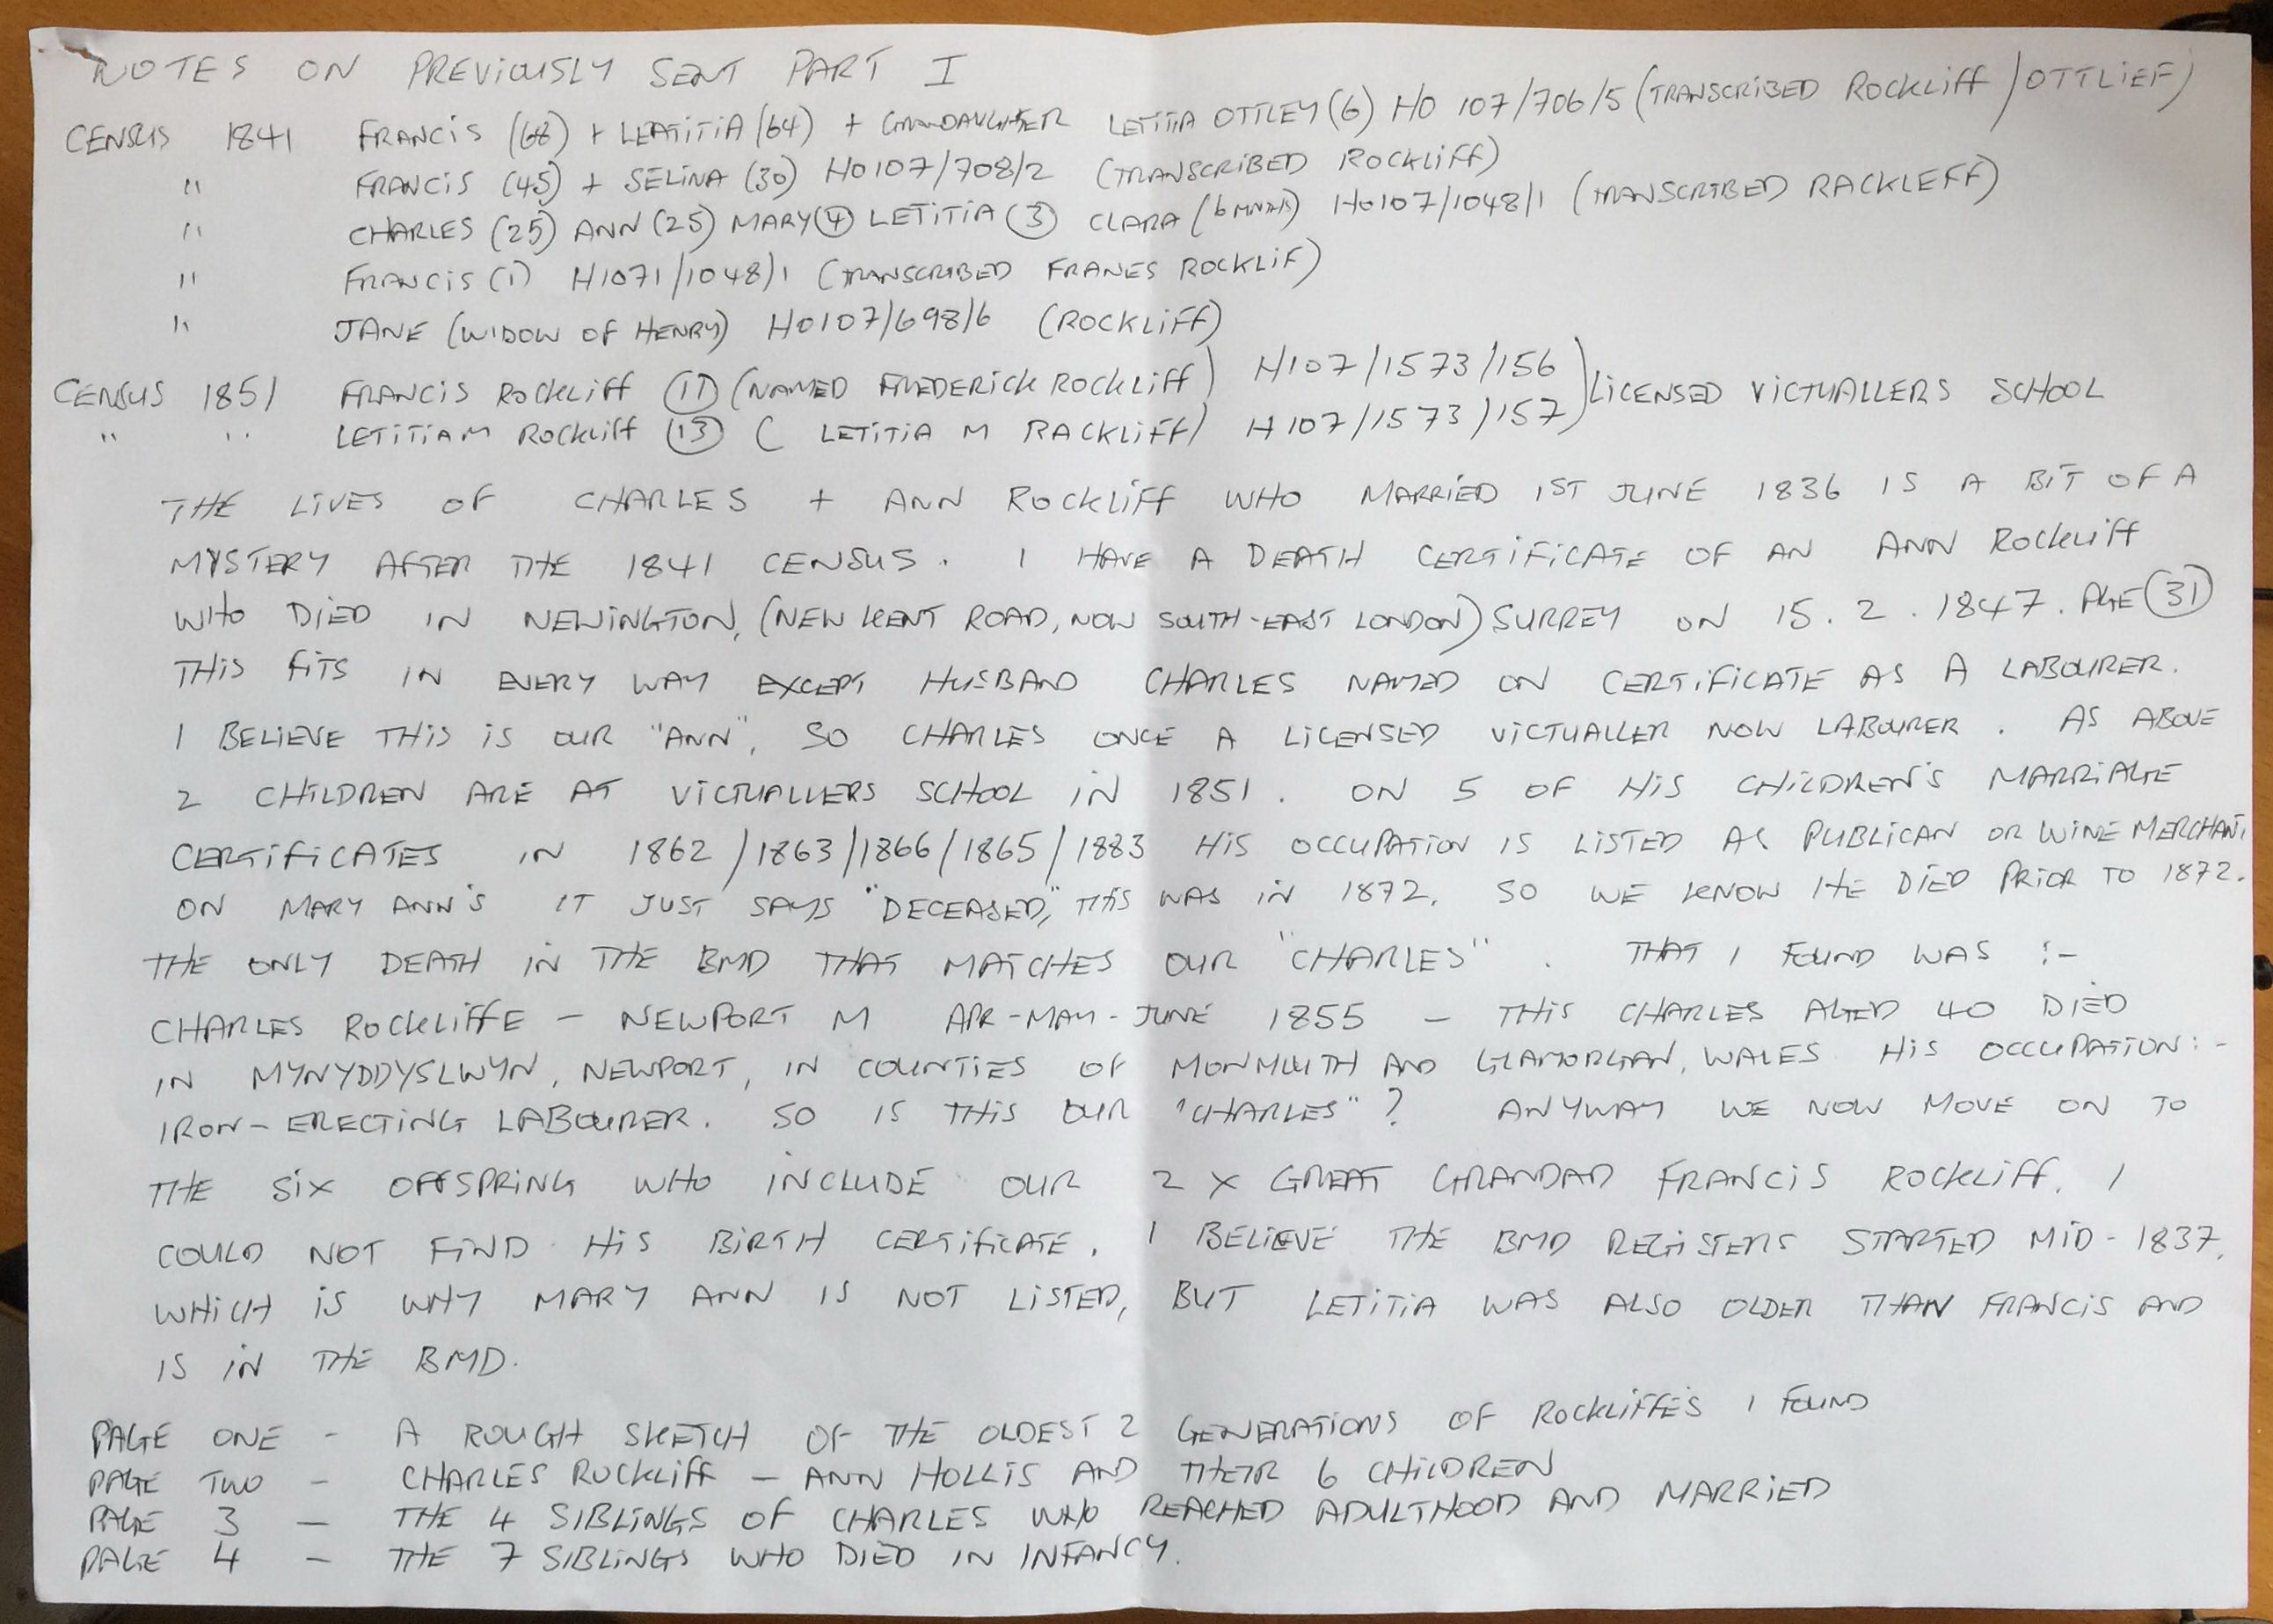 NOTES ON PREVIOUSLY SENT PART I
CENSUS 1841 FRANCIS (68) + LEATITIA (64) + GRANDAUGHTER LETITIA OTTLEY (6) HO 107/706/5 (TRANSCRIBED ROCKLIFF / OTTLIEF)
" FRANCIS (45) + SELINA (30) HO107/708/2 (TRANSCRIBED ROCKLIFF)
" CHARLES (25) ANN (25) MARY (4) LETITIA (3) CLARA (6 MNTHS) HO107/1048/1 (TRANSCRIBED RACKLEFF)
" FRANCIS (1) H1071/1048/1 (TRANSCRIBED FRANES ROCKLIF)
" JANE (WIDOW OF HENRY) HO107/698/6 (ROCKLIFF)
CENSUS 1851 FRANCIS ROCKLIFF (11) (NAMED FREDERICK ROCKLIFF) H107/1573/156 ) LICENSED VICTUALLERS SCHOOL
" " LETITIA M ROCKLIFF (13) ( LETITIA M RACKLIFF) H107/1573/157 )
THE LIVES OF CHARLES + ANN ROCKLIFF WHO MARRIED 1ST JUNE 1836 IS A BIT OF A
MYSTERY AFTER THE 1841 CENSUS. I HAVE A DEATH CERTIFICATE OF AN ANN ROCKLIFF
WHO DIED IN NEWINGTON, (NEW KENT ROAD, NOW SOUTH-EAST LONDON) SURREY ON 15.2.1847. AGE (31)
THIS FITS IN EVERY WAY EXCEPT HUSBAND CHARLES NAMED ON CERTIFICATE AS A LABOURER.
I BELIEVE THIS IS OUR "ANN", SO CHARLES ONCE A LICENSED VICTUALLER NOW LABOURER. AS ABOVE
2 CHILDREN ARE AT VICTUALLERS SCHOOL IN 1851. ON 5 OF HIS CHILDREN'S MARRIAGE
CERTIFICATES IN 1862/1863/1866/1865/1883 HIS OCCUPATION IS LISTED AS PUBLICAN OR WINE MERCHANT
ON MARY ANN'S IT JUST SAYS "DECEASED," THIS WAS IN 1872. SO WE KNOW HE DIED PRIOR TO 1872.
THE ONLY DEATH IN THE BMD THAT MATCHES OUR "CHARLES". THAT I FOUND WAS :-
CHARLES ROCKLIFFE - NEWPORT M APR-MAY-JUNE 1855 - THIS CHARLES AGED 40 DIED
IN MYNYDDYSLWYN, NEWPORT, IN COUNTIES OF MONMOUTH AND GLAMORGAN, WALES. HIS OCCUPATION:-
IRON-ERECTING LABOURER. SO IS THIS OUR "CHARLES"? ANYWAY WE NOW MOVE ON TO
THE SIX OFFSPRING WHO INCLUDE OUR 2 X GREAT GRANDAD FRANCIS ROCKLIFF. I
COULD NOT FIND HIS BIRTH CERTIFICATE. I BELIEVE THE BMD REGISTERS STARTED MID-1837.
WHICH IS WHY MARY ANN IS NOT LISTED, BUT LETITIA WAS ALSO OLDER THAN FRANCIS AND
IS IN THE BMD.
PAGE ONE - A ROUGH SKETCH OF THE OLDEST 2 GENERATIONS OF ROCKLIFFES I FOUND
PAGE TWO - CHARLES ROCKLIFF - ANN HOLLIS AND THEIR 6 CHILDREN
PAGE 3 - THE 4 SIBLINGS OF CHARLES WHO REACHED ADULTHOOD AND MARRIED
PAGE 4 - THE 7 SIBLINGS WHO DIED IN INFANCY.